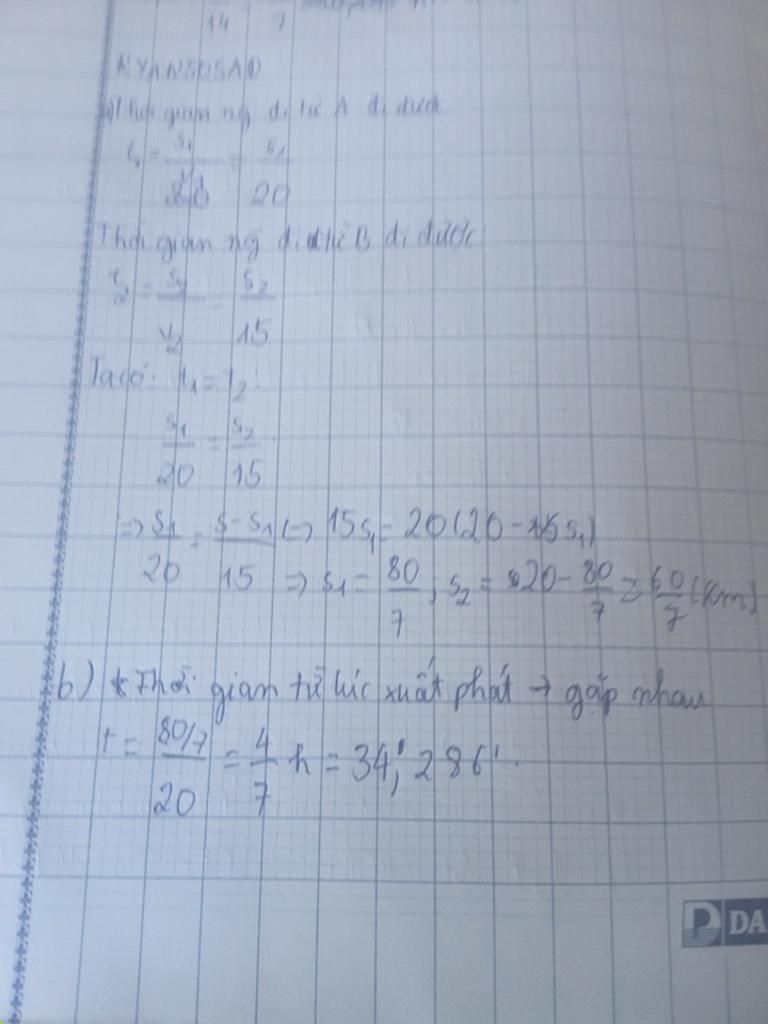 14 7
RYANSOSAD
gian ng đi từ A đi được
t₁ = s₁/v₁ = s₁/20
Thời gian ng đi từ B đi được
t₂ = s₂/v₂ = s₂/15
Ta có: t₁ = t₂
s₁/20 = s₂/15
=> s₁/20 = s-s₁/15 <-> 15s₁ = 20(20 - s₁)
=> s₁ = 80/7 ; s₂ = 20 - 80/7 = 60/7 (km)
b) * Thời gian từ lúc xuất phát → gặp nhau
t = 80/7/20 = 4/7 h = 34,286'.
DA